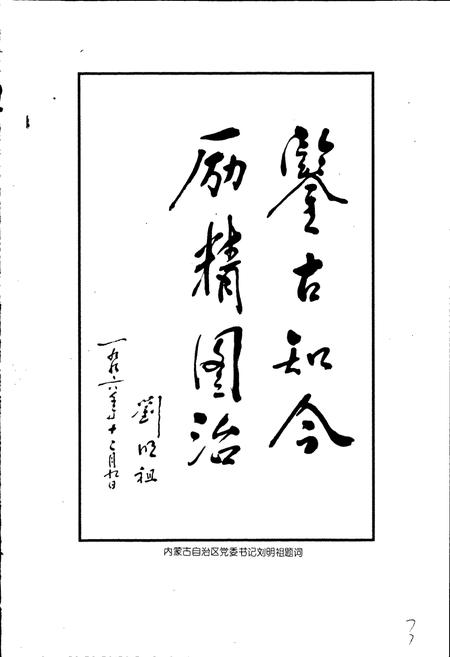 鉴古知今
励精图治
劉明祖
一九九六年十二月九日
内蒙古自治区党委书记刘明祖题词